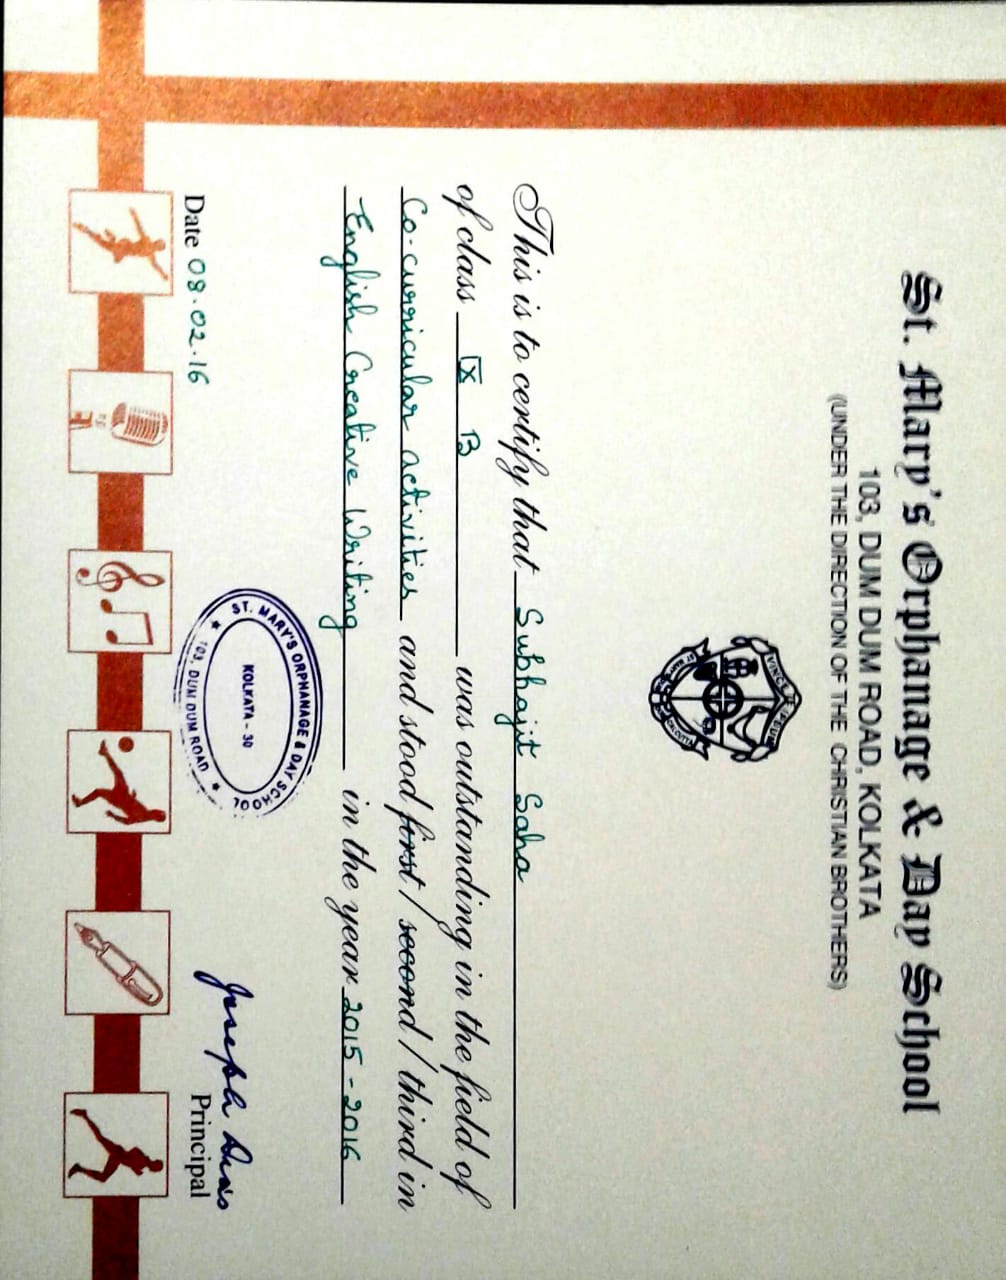 St. Mary's Orphanage & Day School
103, DUM DUM ROAD, KOLKATA
(UNDER THE DIRECTION OF THE CHRISTIAN BROTHERS)
VINCE TE IPSUM
ST MARY'S CALCUTTA
This is to certify that Subhajit Saha
of class IX B was outstanding in the field of
Co-curricular activities and stood first / second / third in
English Creative Writing in the year 2015 - 2016
ST. MARY'S ORPHANAGE & DAY SCHOOL
KOLKATA - 30
103, DUM DUM ROAD
Joseph Dias
Date 08.02.16
Principal